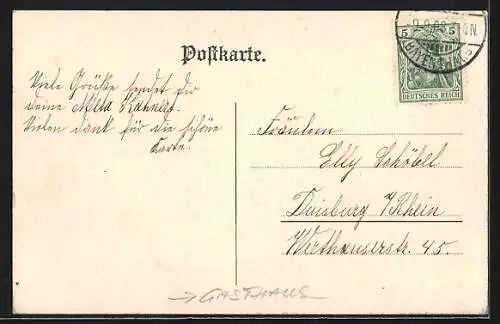 Postkarte.
Viele Grüße sendet Dir
deine Milla
Vielen dank für die schöne
Karte!
5 5
DEUTSCHES REICH
Fräulein
Elly Schöbel
Duisburg a/Rhein
Werthauserstr. 45.
→ GASTHAUS